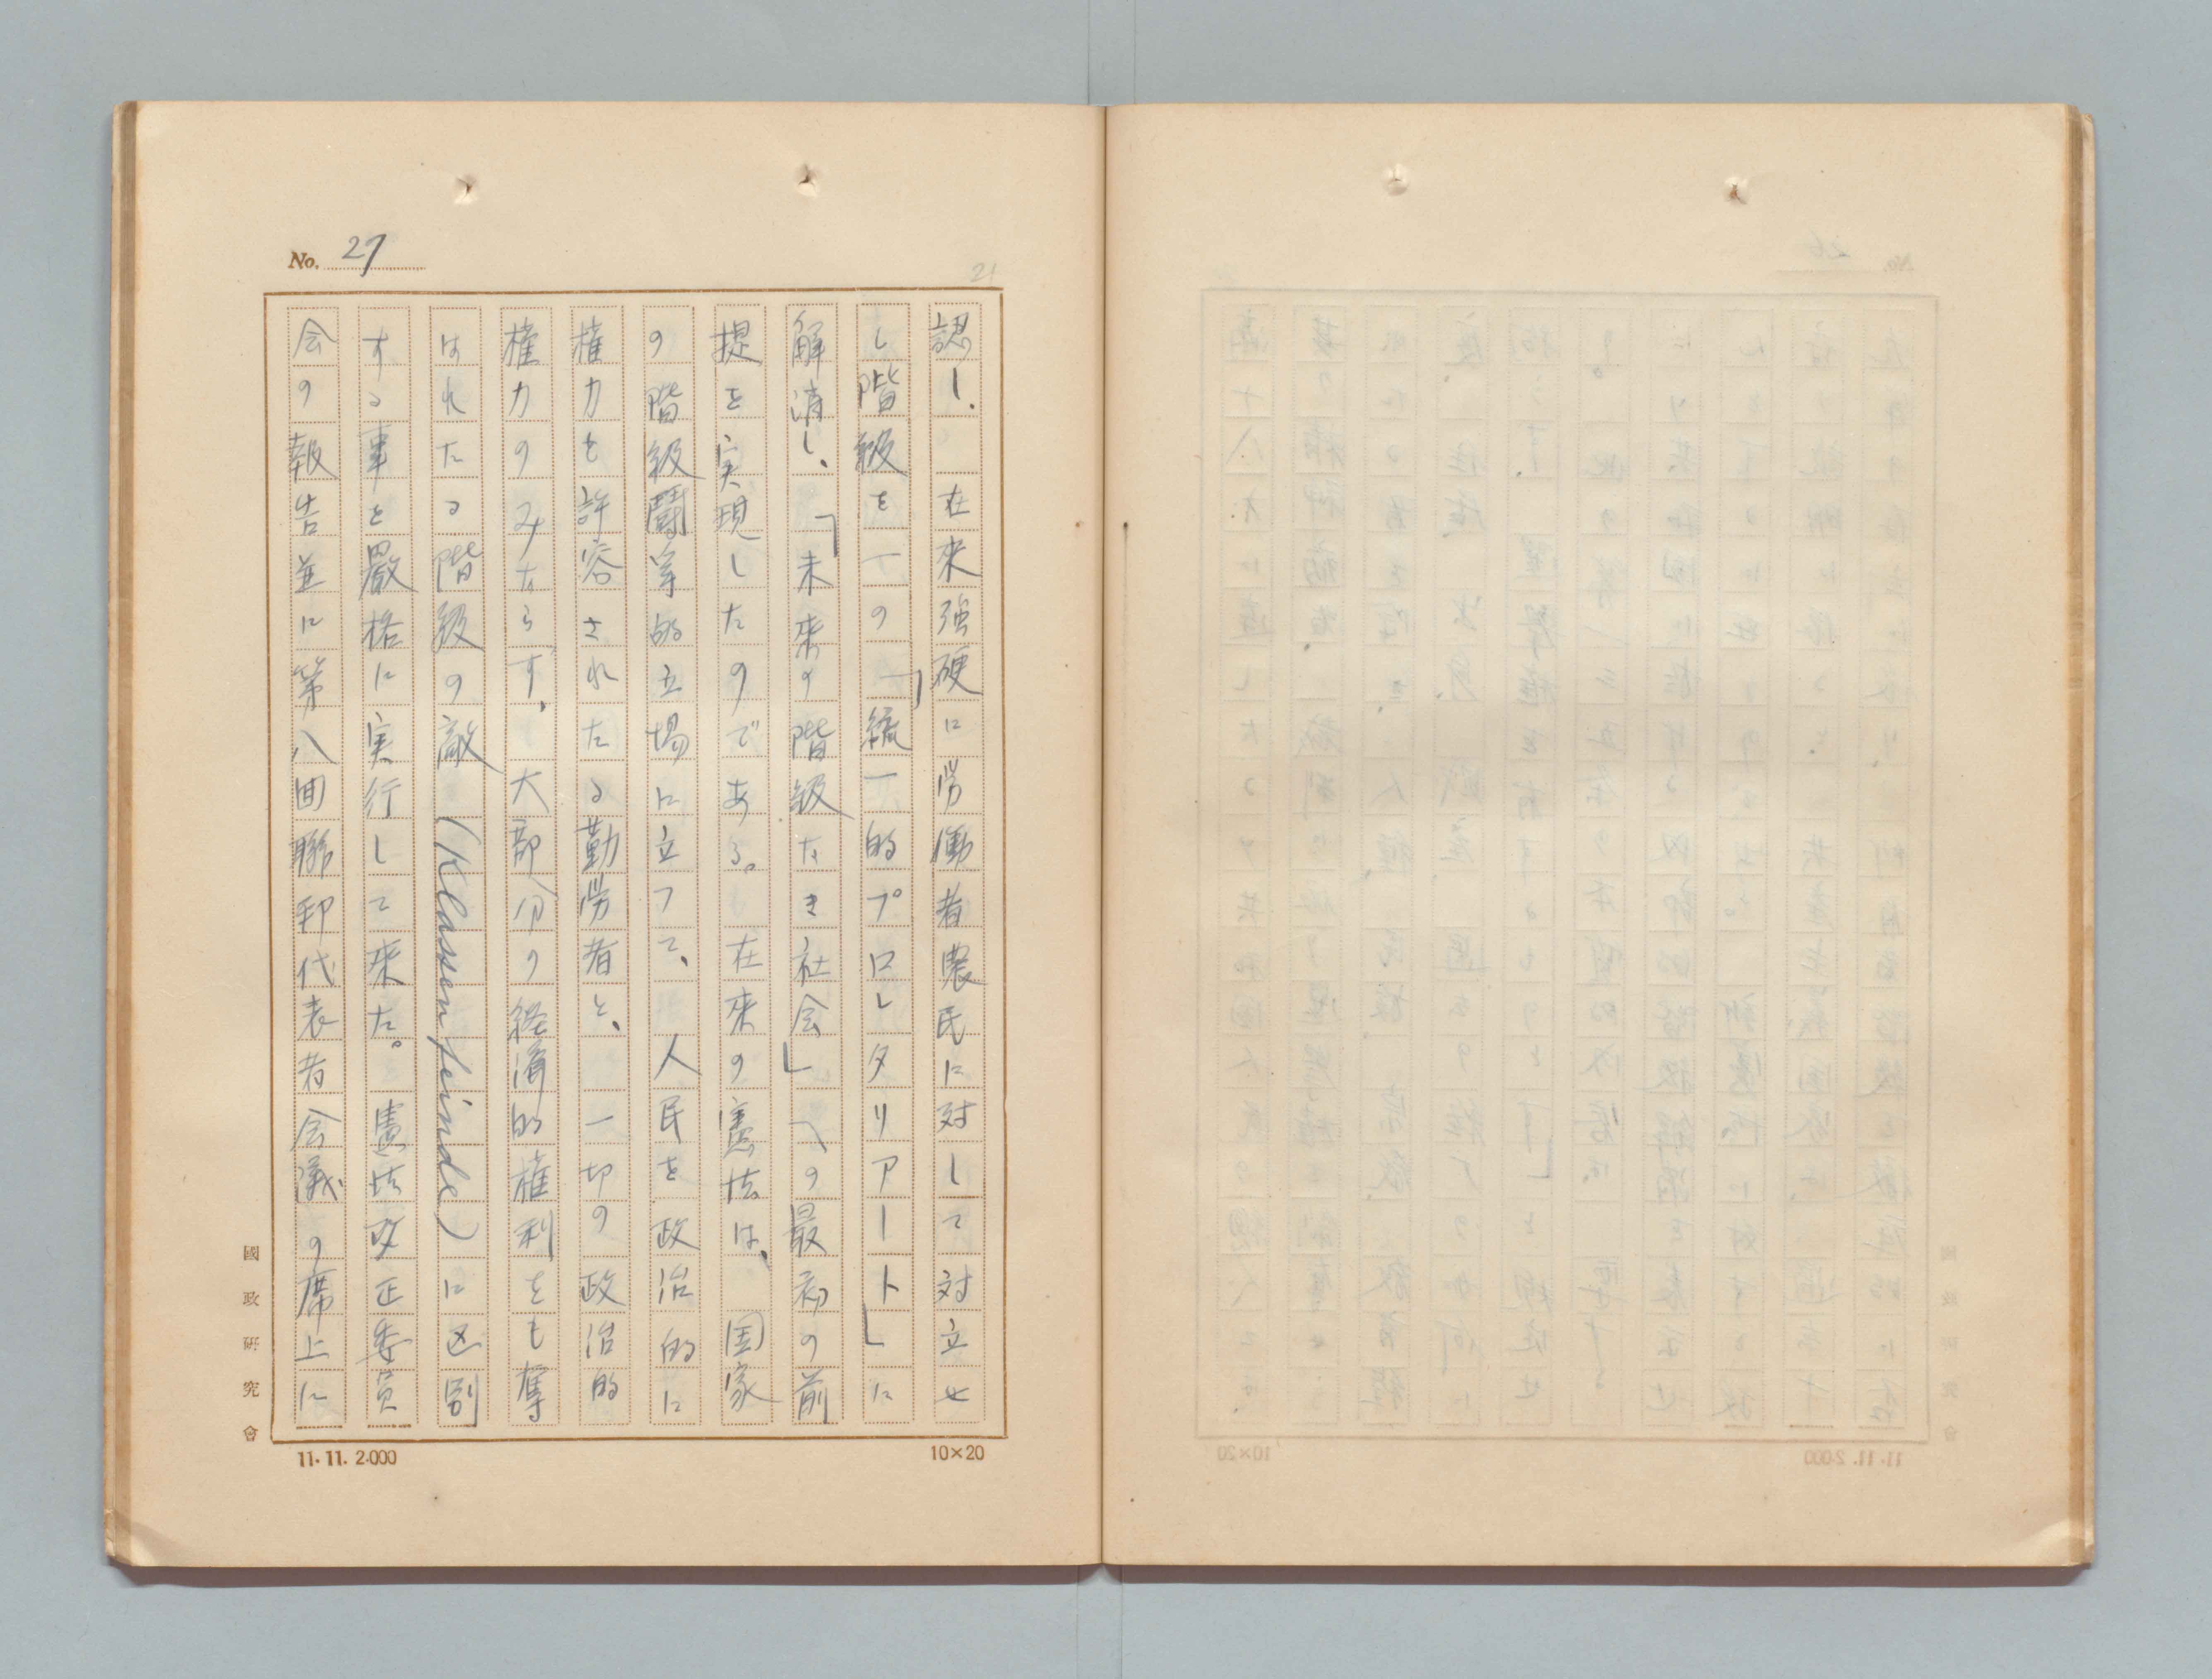 No. 27
21
認し、在来強硬に労働者農民に対して対立せ
し階級を一の「統一的プロレタリアート」に
解消し、「未来の階級なき社会」への最初の前
提を実現したのである。在来の憲法は、国家
の階級闘争的立場に立つて、人民を政治的に
権力を許容されたる勤労者と、一切の政治的
権力のみならず、大部分の経済的権利をも奪
はれたる階級の敵(Klassenfeinde)に区別
する事を厳格に実行して来た。憲法改正委員
会の報告並に第八回聯邦代表者会議の席上に
國政研究會
11.11.2.000
10×20